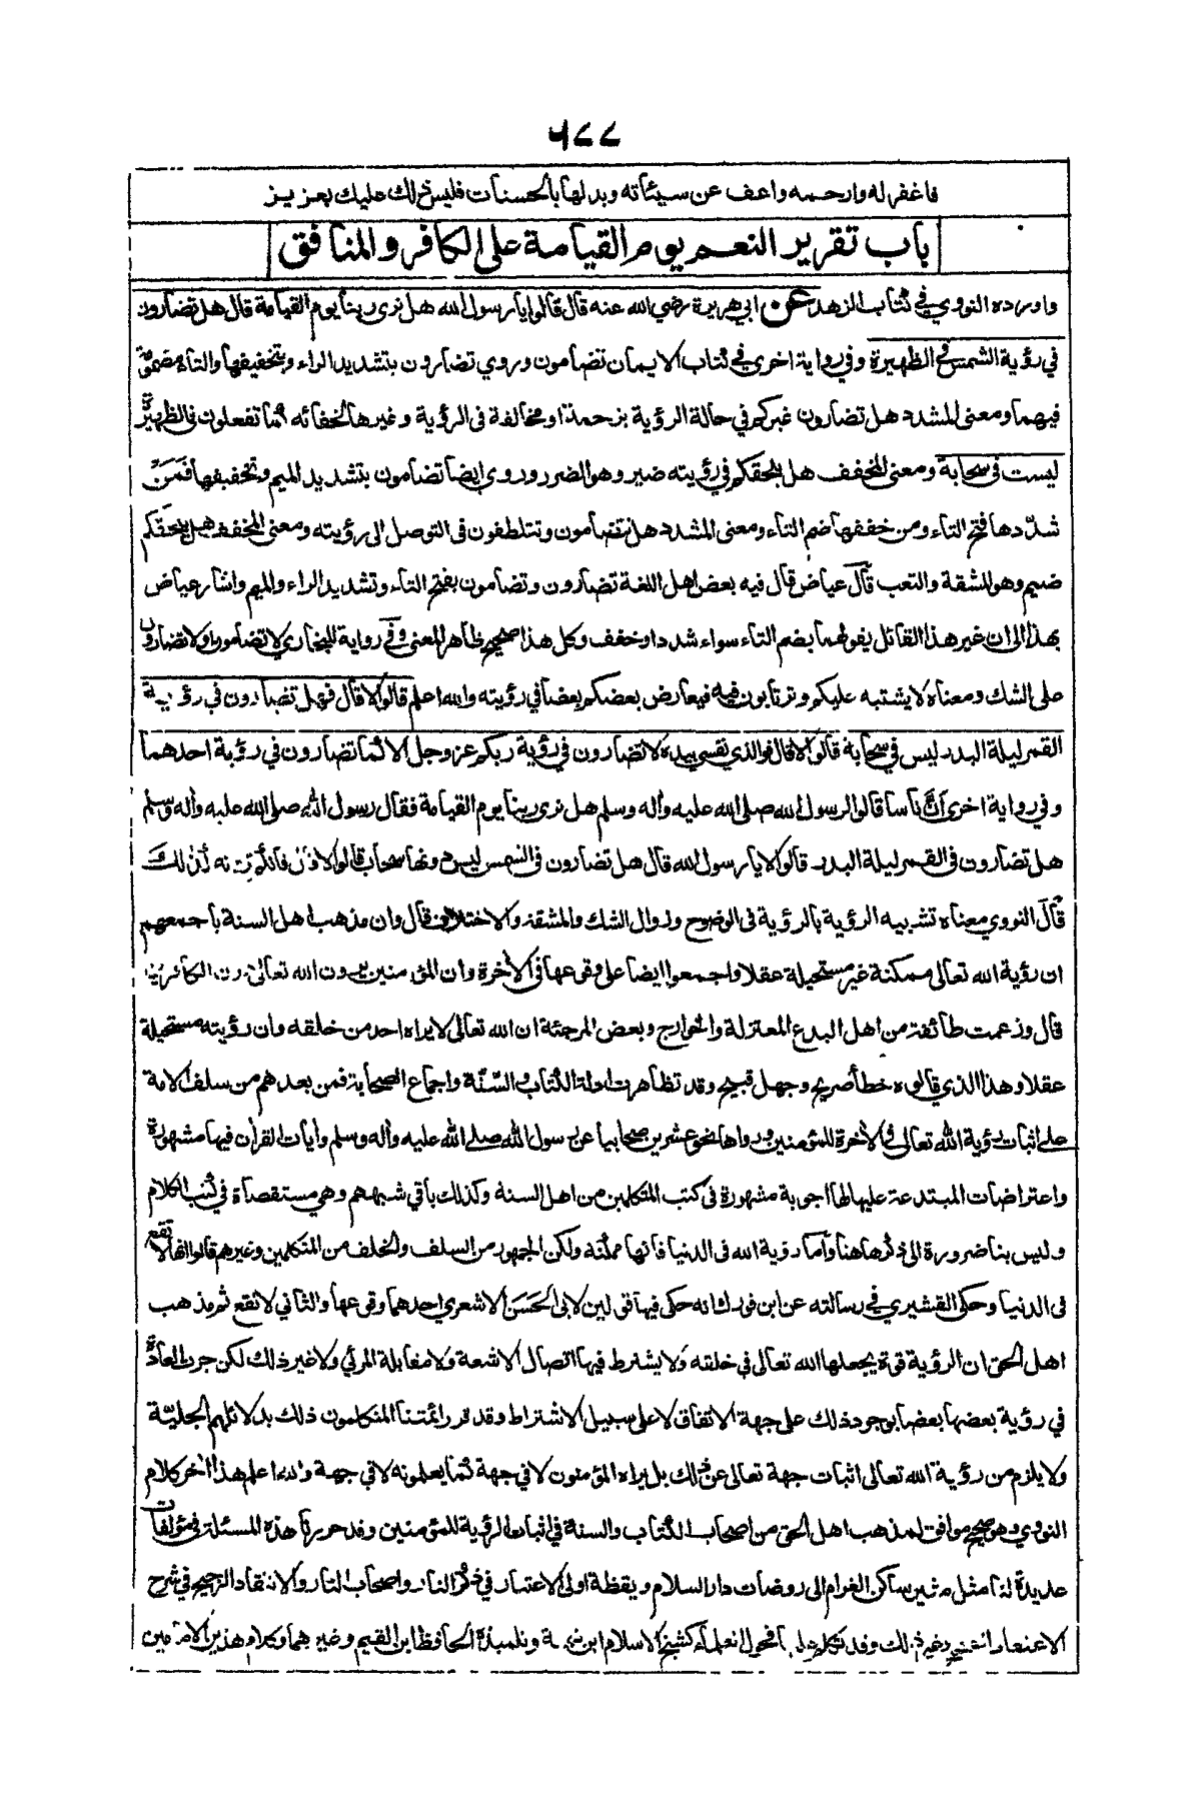 ٦٨٨
فاغفر له وارحمه واعف عن سيئاته وبدلها بالحسنات فليس ذلك عليك بعزيز
باب تقرير النعم يوم القيامة على الكافر والمنافق
واورده النووي في كتاب الزهد عن ابي هريرة رضي الله عنه قال قالوا يا رسول الله هل نرى ربنا يوم القيامة قال هل تضارون
في رؤية الشمس في الظهيرة وفي رواية اخرى في كتاب الايمان تضامون وروي تضارون بتشديد الراء وبتخفيفها والتاء مضمومة
فيهما ومعنى المشدد هل تضارون غيركم في حالة الرؤية بزحمة او مخالفة في الرؤية وغيرها لخفائه كما تفعلون في الظهيرة
ليست في سحابة ومعنى المخفف هل يلحقكم في رؤيته ضير وهو الضرر وروي ايضا تضامون بتشديد الميم وتخفيفها فمن
شدّدها فتح التاء ومن خففها ضم التاء ومعنى المشدد هل تتضامون وتتلطفون في التوصل الى رؤيته ومعنى المخفف هل يلحقكم
ضيم وهو المشقة والتعب قال عياض قال فيه بعض اهل اللغة تضارون وتضامون بفتح التاء وتشديد الراء والميم واشار عياض
بهذا الى ان غير هذا القائل يقولهما بضم التاء سواء شدد او خفف وكل هذا صحيح ظاهر المعنى وفي رواية للبخاري لا تضامون او لا تضارون
على الشك ومعناه لا يشتبه عليكم وترتابون فيه فيعارض بعضكم بعضا في رؤيته والله اعلم قالوا لا قال فهل تضارون في رؤية
القمر ليلة البدر ليس في سحابة قالوا لا قال فوالذي نفسي بيده لا تضارون في رؤية ربكم عز وجل الا كما تضارون في رؤية احدهما
وفي رواية اخرى ان ناسا قالوا لرسول الله صلى الله عليه واله وسلم هل نرى ربنا يوم القيامة فقال رسول الله صلى الله عليه واله وسلم
هل تضارون في القمر ليلة البدر قالوا لا يا رسول الله قال هل تضارون في الشمس ليس دونها سحاب قالوا لا قال فانكم ترونه كذلك
قال النووي معناه تشبيه الرؤية بالرؤية في الوضوح وزوال الشك والمشقة والاختلاف قال وان مذهب اهل السنة باجمعهم
ان رؤية الله تعالى ممكنة غير مستحيلة عقلا واجمعوا ايضا على وقوعها في الاخرة وان المؤمنين يرون الله تعالى دون الكافرين
قال وزعمت طائفة من اهل البدع المعتزلة والخوارج وبعض المرجئة ان الله تعالى لا يراه احد من خلقه وان رؤيته مستحيلة
عقلا وهذا الذي قالوه خطأ صريح وجهل قبيح وقد تظاهرت ادلة الكتاب والسنّة واجماع الصحابة فمن بعدهم من سلف الامة
على اثبات رؤية الله تعالى في الاخرة للمؤمنين ورواها نحو عشرين صحابيا عن رسول الله صلى الله عليه واله وسلم وايات القران فيها مشهورة
واعتراضات المبتدعة عليها لها اجوبة مشهورة في كتب المتكلمين من اهل السنة وكذلك باقي شبههم وهي مستقصاة في كتب الكلام
وليس بنا ضرورة الى ذكرها هنا واما رؤية الله في الدنيا فانها ممكنة ولكن الجمهور من السلف والخلف من المتكلمين وغيرهم قالوا انها لا تقع
في الدنيا وحكى القشيري في رسالته عن ابن فورك انه حكى فيها قولين لابي الحسن الاشعري احدهما وقوعها والثاني لا تقع ثم مذهب
اهل الحق ان الرؤية قوة يجعلها الله تعالى في خلقه ولا يشترط فيها اتصال الاشعة ولا مقابلة المرئي ولا غير ذلك لكن جرت العادة
في رؤية بعضها بعضا بوجود ذلك على جهة الاتفاق لا على سبيل الاشتراط وقد قرر ائمتنا المتكلمون ذلك بدلائلهم الجليّة
ولا يلزم من رؤية الله تعالى اثبات جهة تعالى عن ذلك بل يراه المؤمنون لا في جهة كما يعلمونه لا في جهة والله اعلم هذا اخر كلام
النووي وهو صحيح موافق لمذهب اهل الحق من اصحاب الكتاب والسنة في اثبات الرؤية للمؤمنين وقد حررنا هذه المسئلة في مؤلفات
عديدة لنا مثل مثير ساكن الغرام الى روضات دار السلام ويقظة اولى الاعتبار في ذكر النار واصحاب النار والانتقاد الرجيح في شرح
الاعتقاد الصحيح وغير ذلك وقد تكلم عليها فحول العلماء كشيخ الاسلام ابن تيمية وتلميذه الحافظ ابن القيم وغيرهما وكلام هذين الامامين